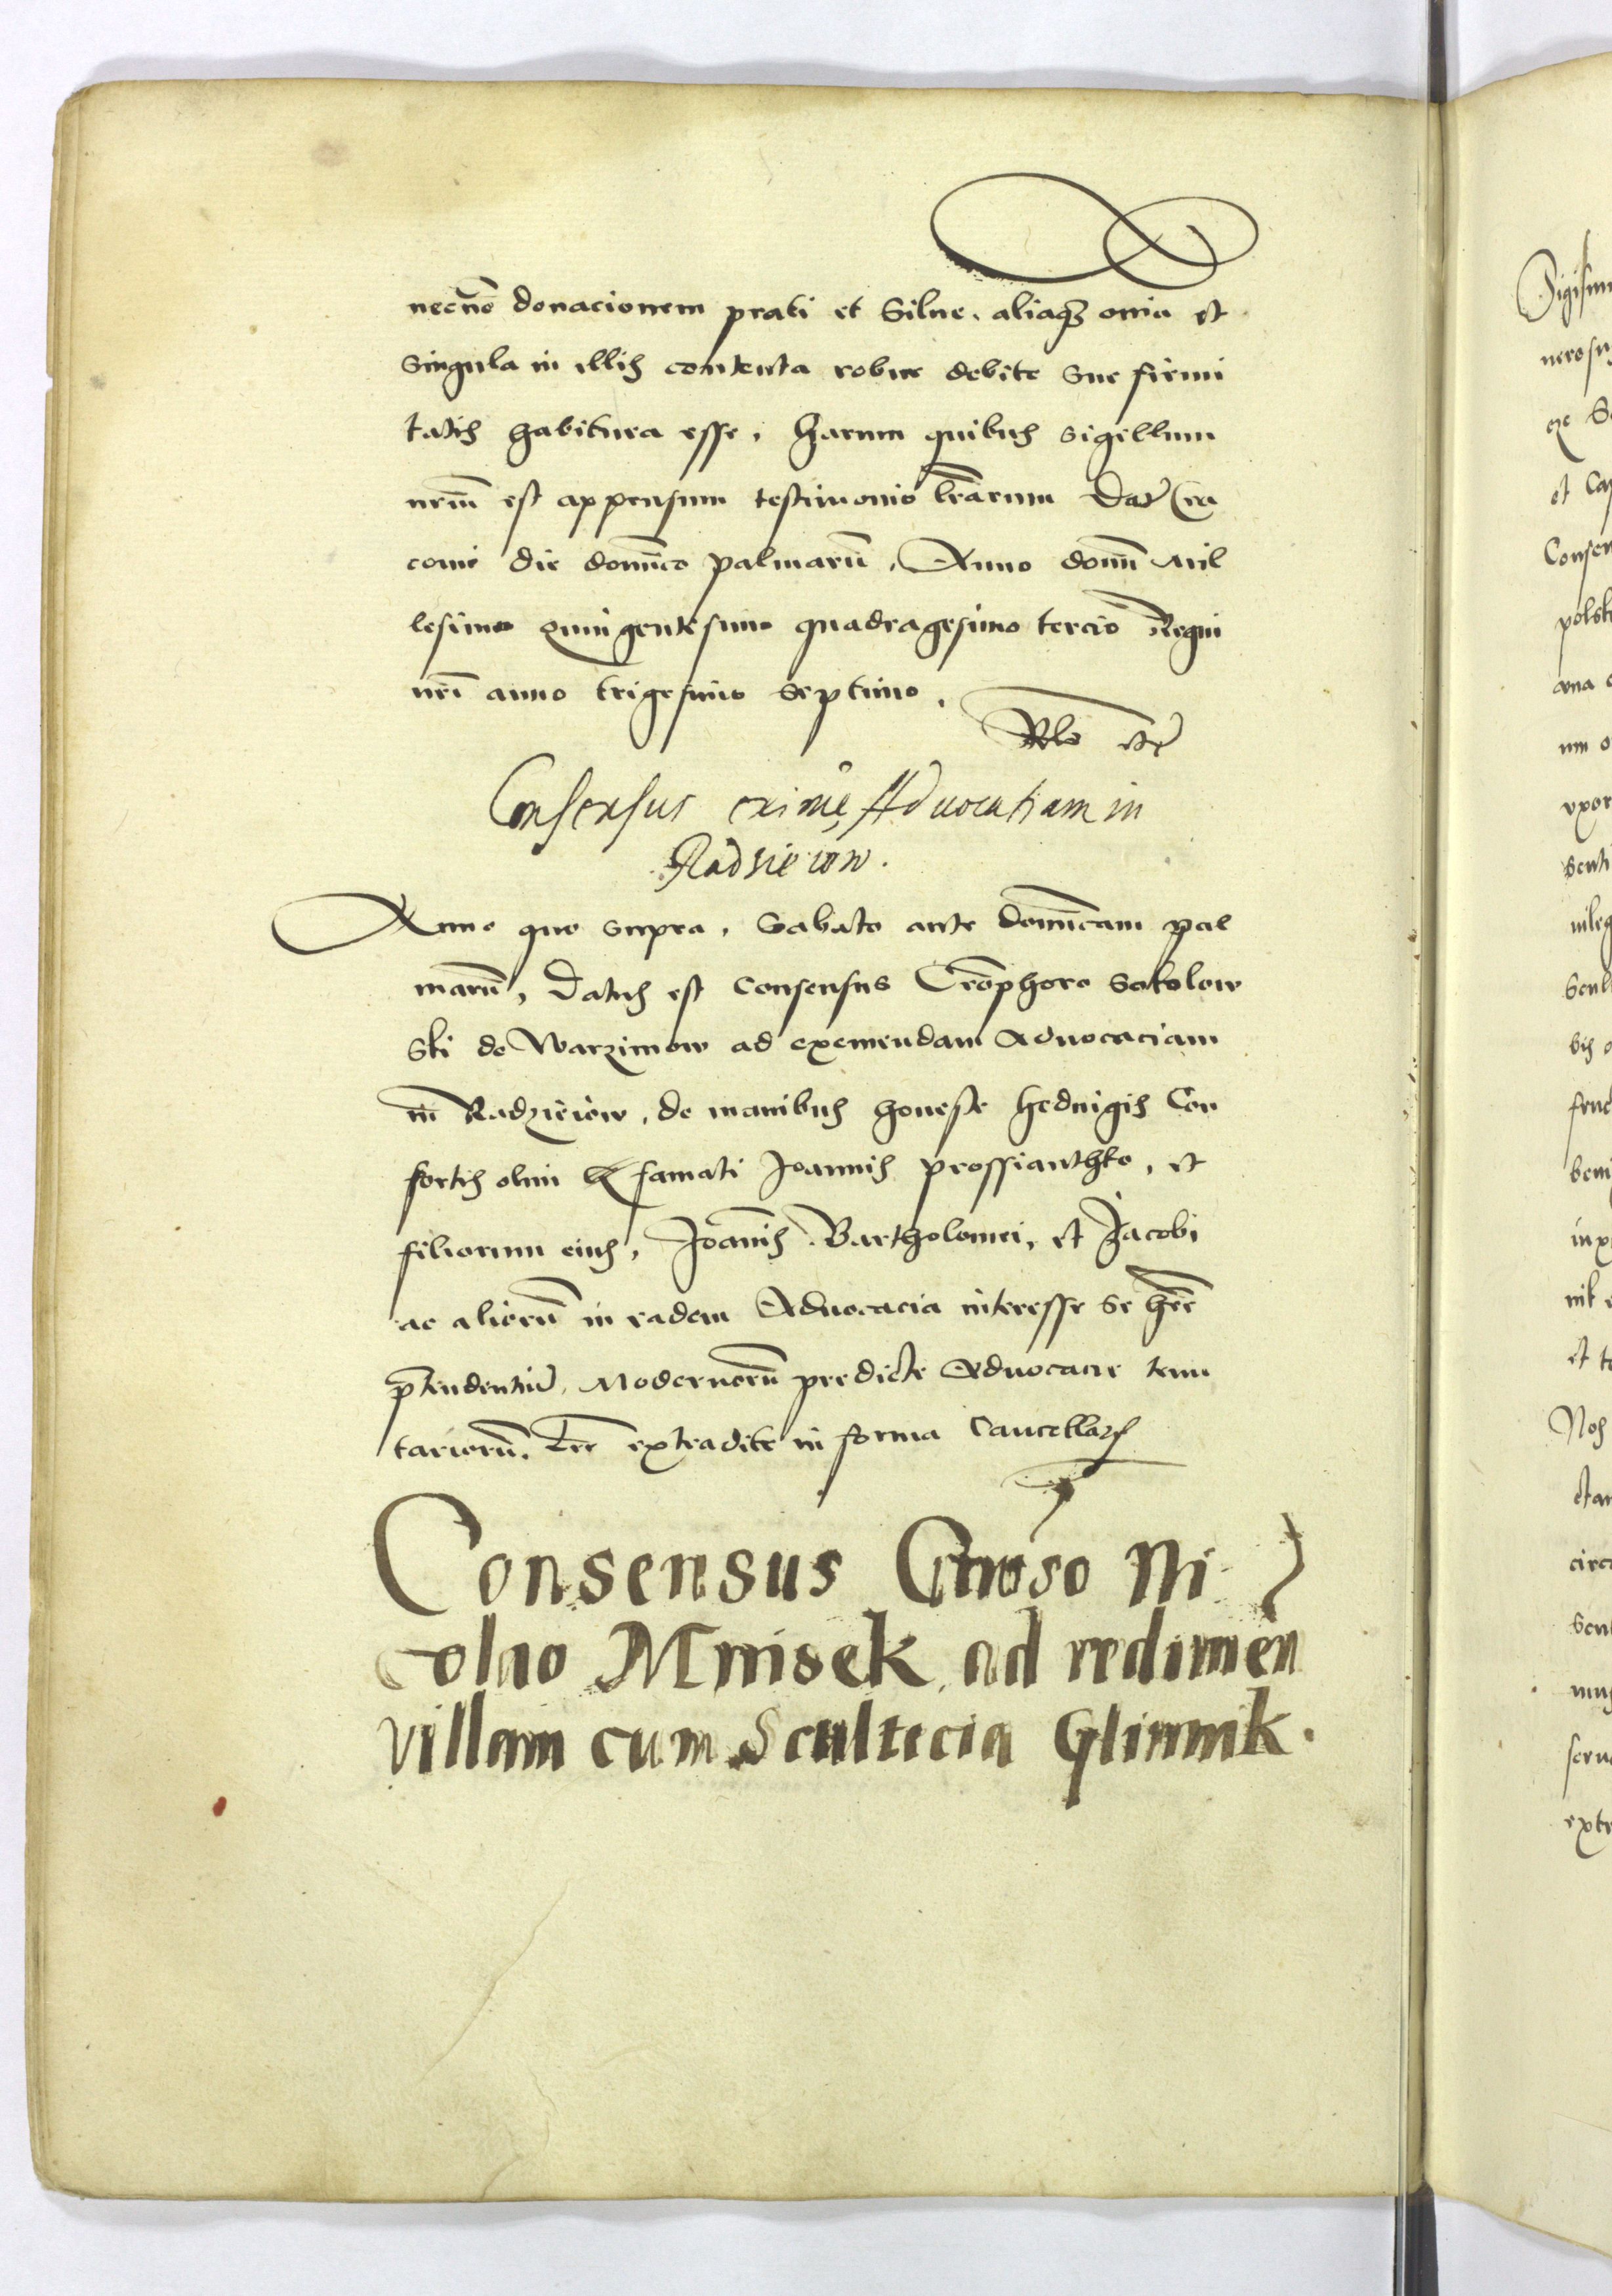 necnō donacionem prati et Silue, aliaqȝ om̄ia et
singula in illis contenta robur debite sue firmi
tatis habitura esse, harum quibus sigillum
nrm̄ est appensum testimonio lr̄arum Dat Cra
couie die domīco palmarū, Anno domī mil
lesimo quingentesimo quadragesimo tercio Regni
nrī anno trigesimo septimo.
Rlo etc
Consensus eximē Aduocatiam in
Radzieiow.
Anno quo supra, Sabato ante domīcam pal
marū, datus est consensus Crōphoro Sokolow
ski de Warzimow ad exemendam Aduocaciam
in Radzieiow, de manibus honeste Hedwigis Con
sortis olim famati Joannis prossianthko, et
filiorum eius, Joānis Bartholomei, et Jacobi
ac aliorū in eadem Aduocacia interesse se hr̄e
p̄tendentiū, Modernorū predicte Aduocacie tenu
tariorū. Lr̄e extradite in forma Cancellarȷ̄
Consensus Gnroso Ni
colao Mnisek ad redimēn
villam cum Scultecia Glinnik.
Sigism
neros
et Cap
Consen
polsk
um o
vxor
senti
bis o
beni
et t
Nos
circa
extr